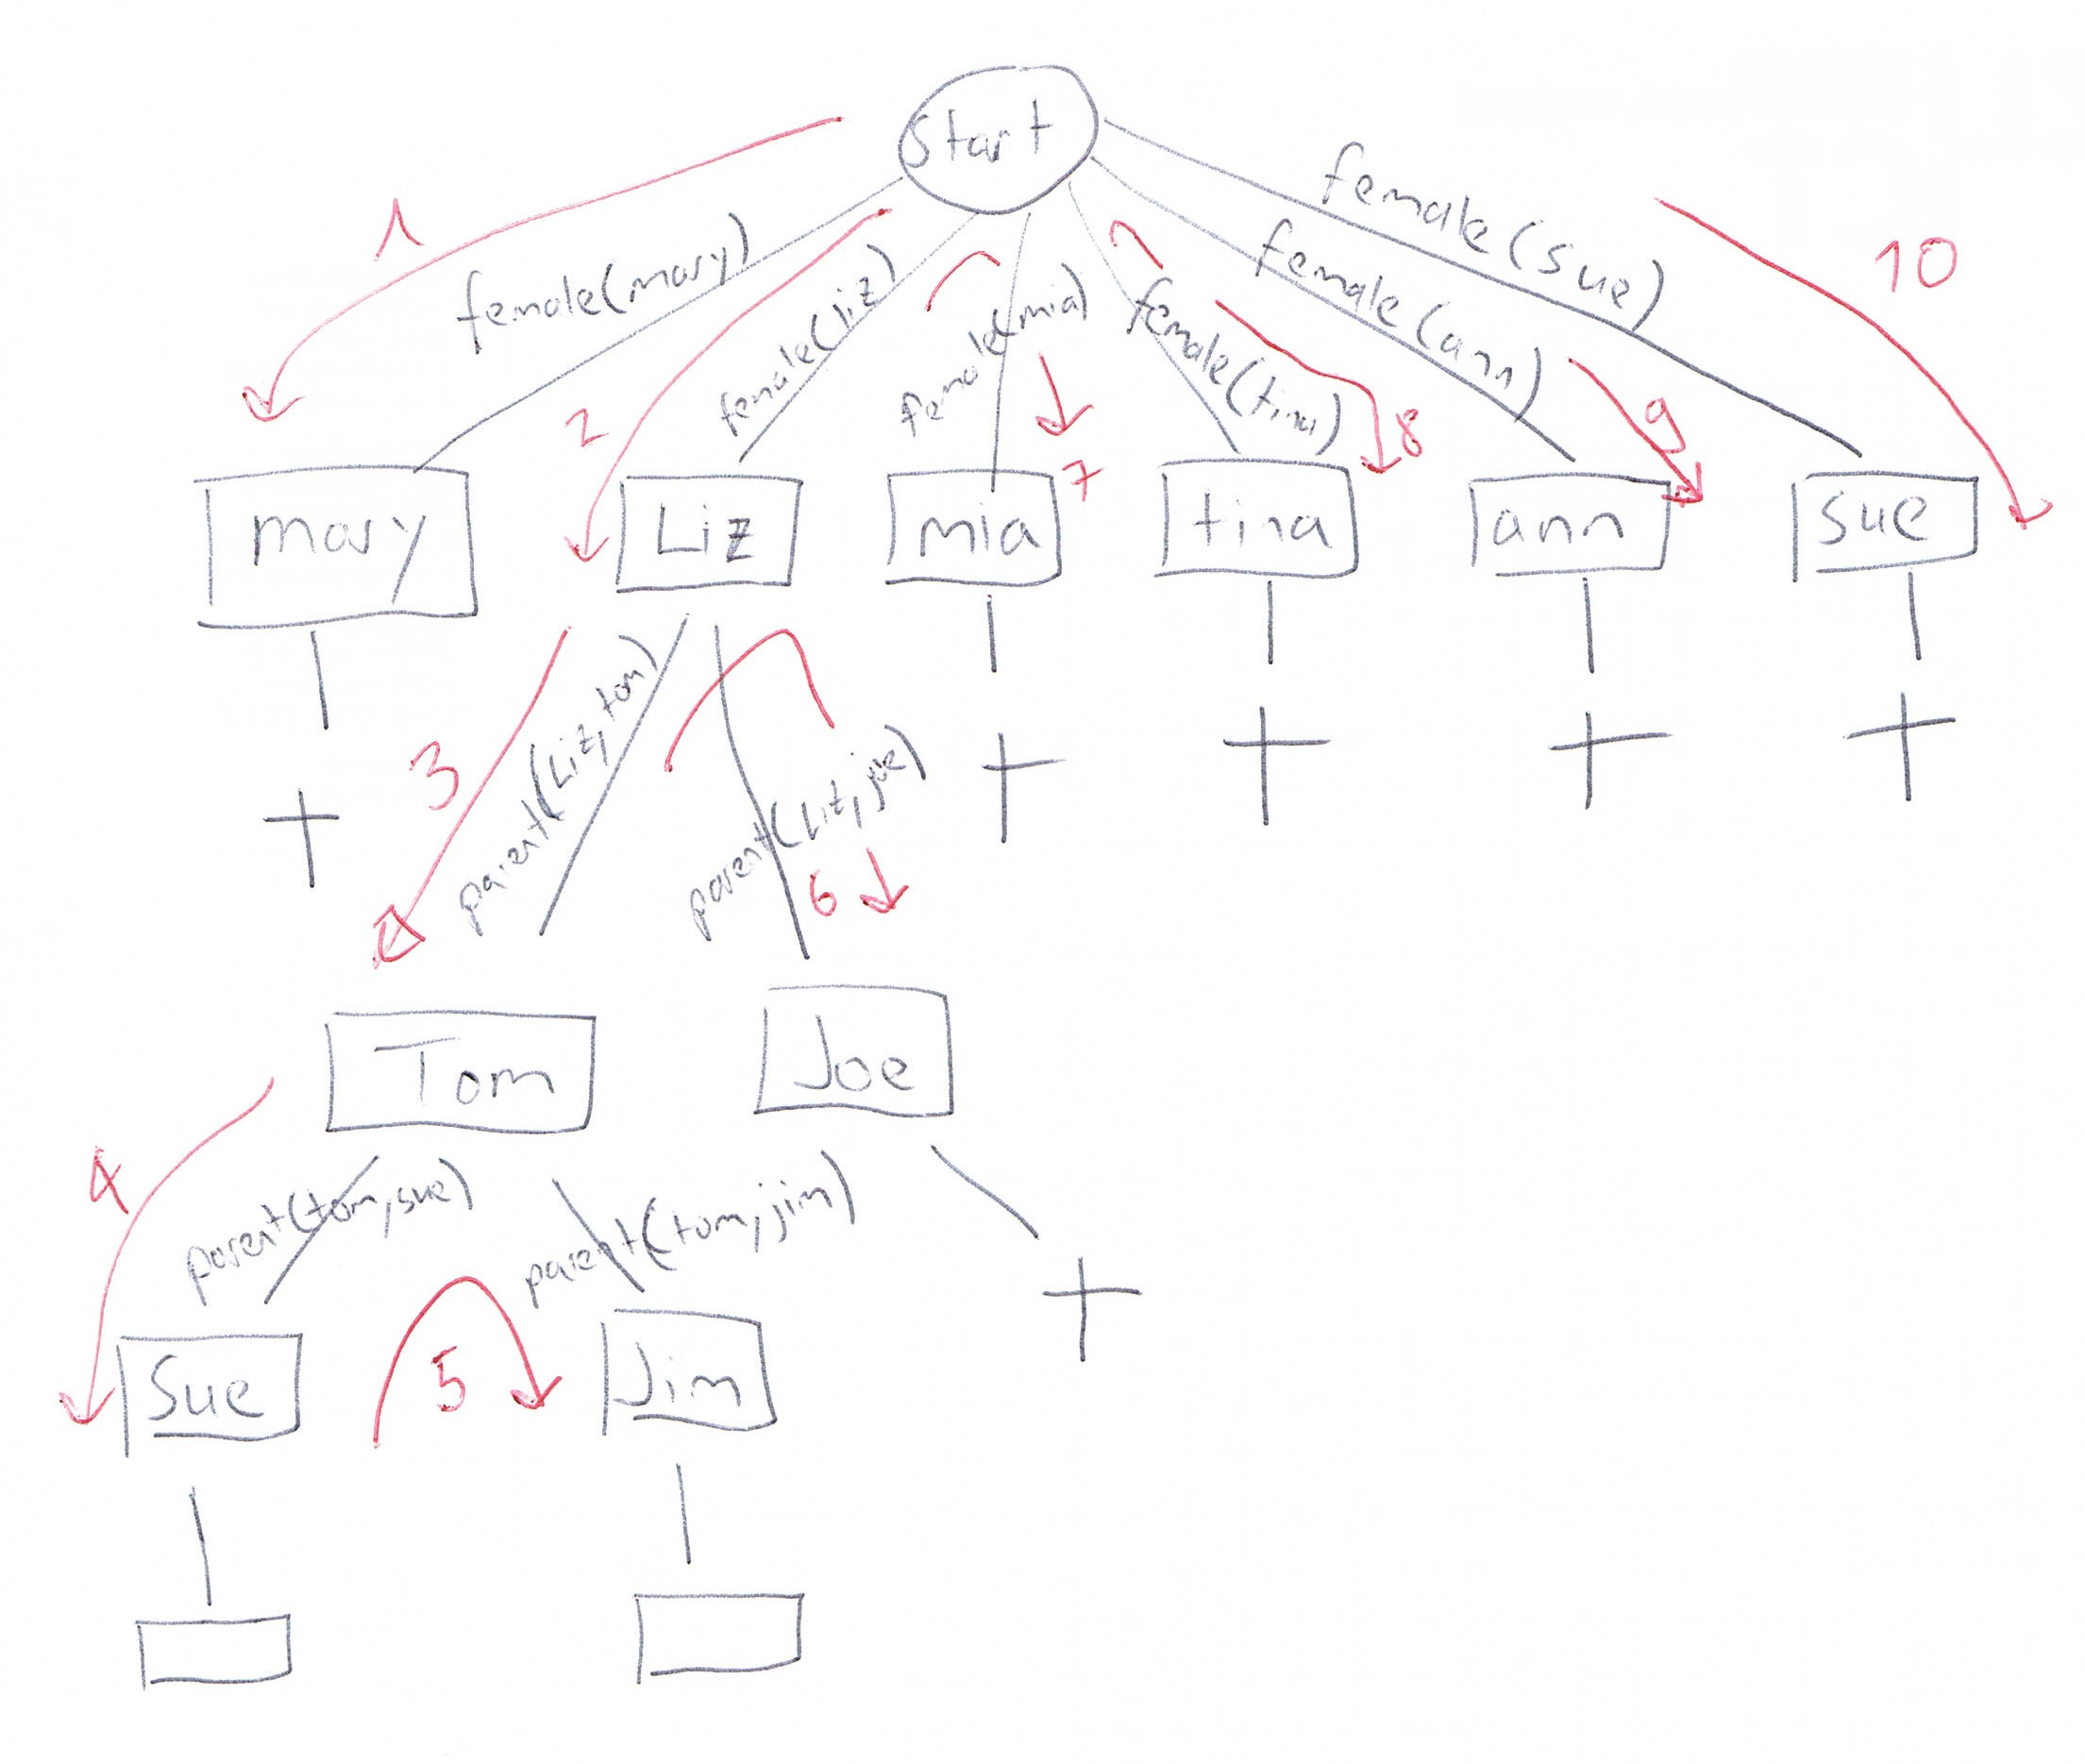 Start
1
female(mary)
2
female(liz)
female(mia)
7
female(tina)
8
female(ann)
9
female(sue)
10
mary
Liz
mia
tina
ann
sue
3
parent(Liz,tom)
parent(Liz,joe)
6
Tom
Joe
4
parent(tom,sue)
parent(tom,jim)
5
Sue
Jim